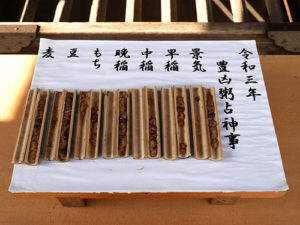 令和三年
豊凶粥占神事
景気
早稲
中稲
晩稲
もち
豆
麦